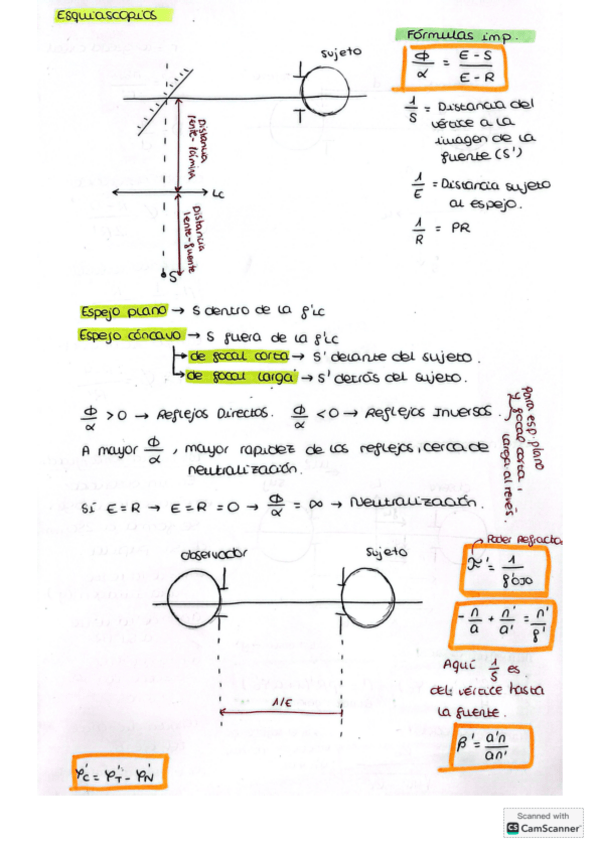 Esquiascopios
Fórmulas imp.
sujeto
Φ/α = E-S/E-R
1/S = Distancia del
vértice a la
imagen de la
fuente (S')
1/E = Distancia sujeto
al espejo.
1/R = PR
Distancia
lente-lámina
LC
Distancia
lente-fuente
S
Espejo plano → S dentro de la f'LC
Espejo cóncavo → S fuera de la f'LC
de focal corta → S' delante del sujeto.
de focal larga → S' detrás del sujeto.
Φ/α > 0 → Reflejos Directos. Φ/α < 0 → Reflejos Inversos.
para esp. plano
y focal corta,
larga al revés.
A mayor Φ/α, mayor rapidez de los reflejos, cerca de
neutralización.
Si E=R → E-R=0 → Φ/α = ∞ → Neutralización.
observador
sujeto
Poder Refractor
= 1/f'ojo
-n/a + n'/a' = n'/f'
Aquí 1/S es
del vértice hasta
la fuente.
1/E
β' = a'n/an'
φ'C = φ'T - φ'N
Scanned with
CS CamScanner